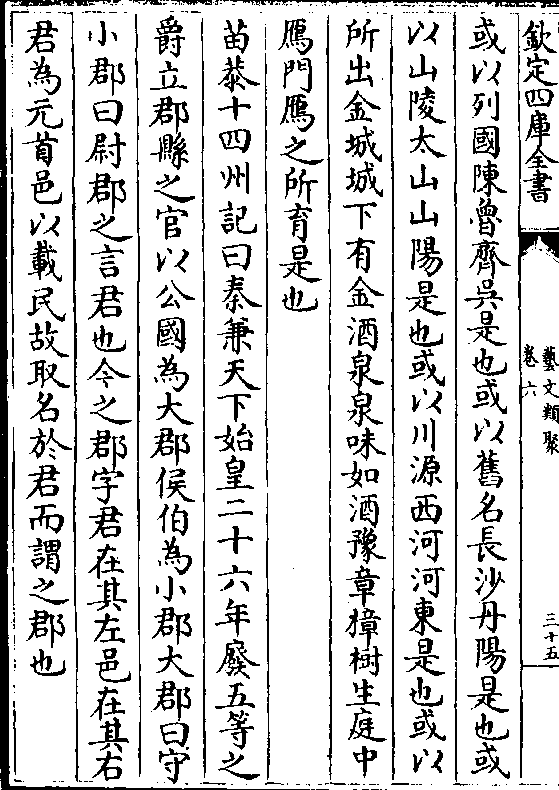 欽定四庫全書
藝文類聚
卷六
三十五
或以列國陳魯齊吳是也或以舊名長沙丹陽是也或
以山陵太山山陽是也或以川源西河河東是也或以
所出金城城下有金酒泉泉味如酒豫章獐樹生庭中
鴈門鴈之所育是也
苗恭十四州記曰秦兼天下始皇二十六年廢五等之
爵立郡縣之官以公國為大郡侯伯為小郡大郡曰守
小郡曰尉郡之言君也今之郡字君在其左邑在其右
君為元首邑以載民故取名於君而謂之郡也